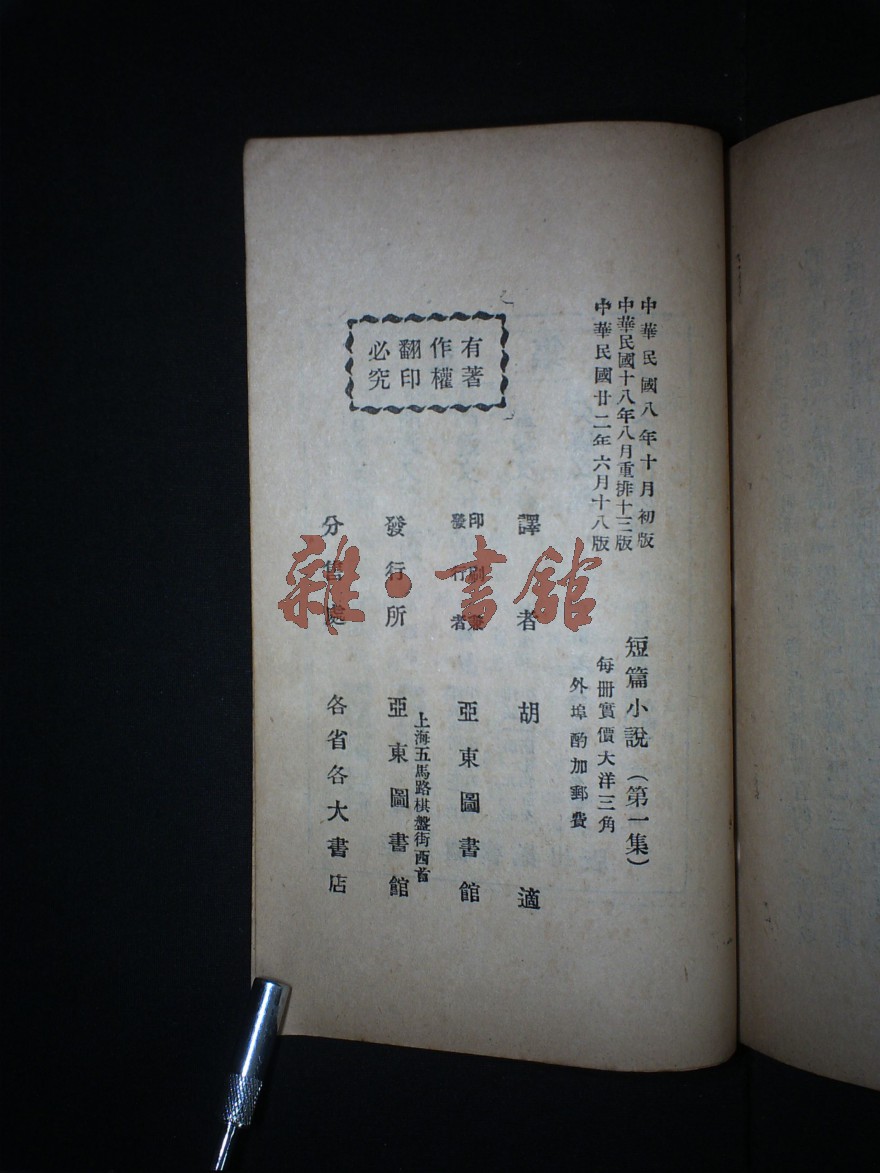 中華民國八年十月初版
中華民國十八年八月重排十三版
中華民國廿二年六月十八版
短篇小說（第一集）
每冊實價大洋三角
外埠酌加郵費
有著
作權
翻印
必究
譯者 胡適
印刷兼
發行者 亞東圖書館
上海五馬路棋盤街西首
發行所 亞東圖書館
分售處 各省各大書店
雜·書館